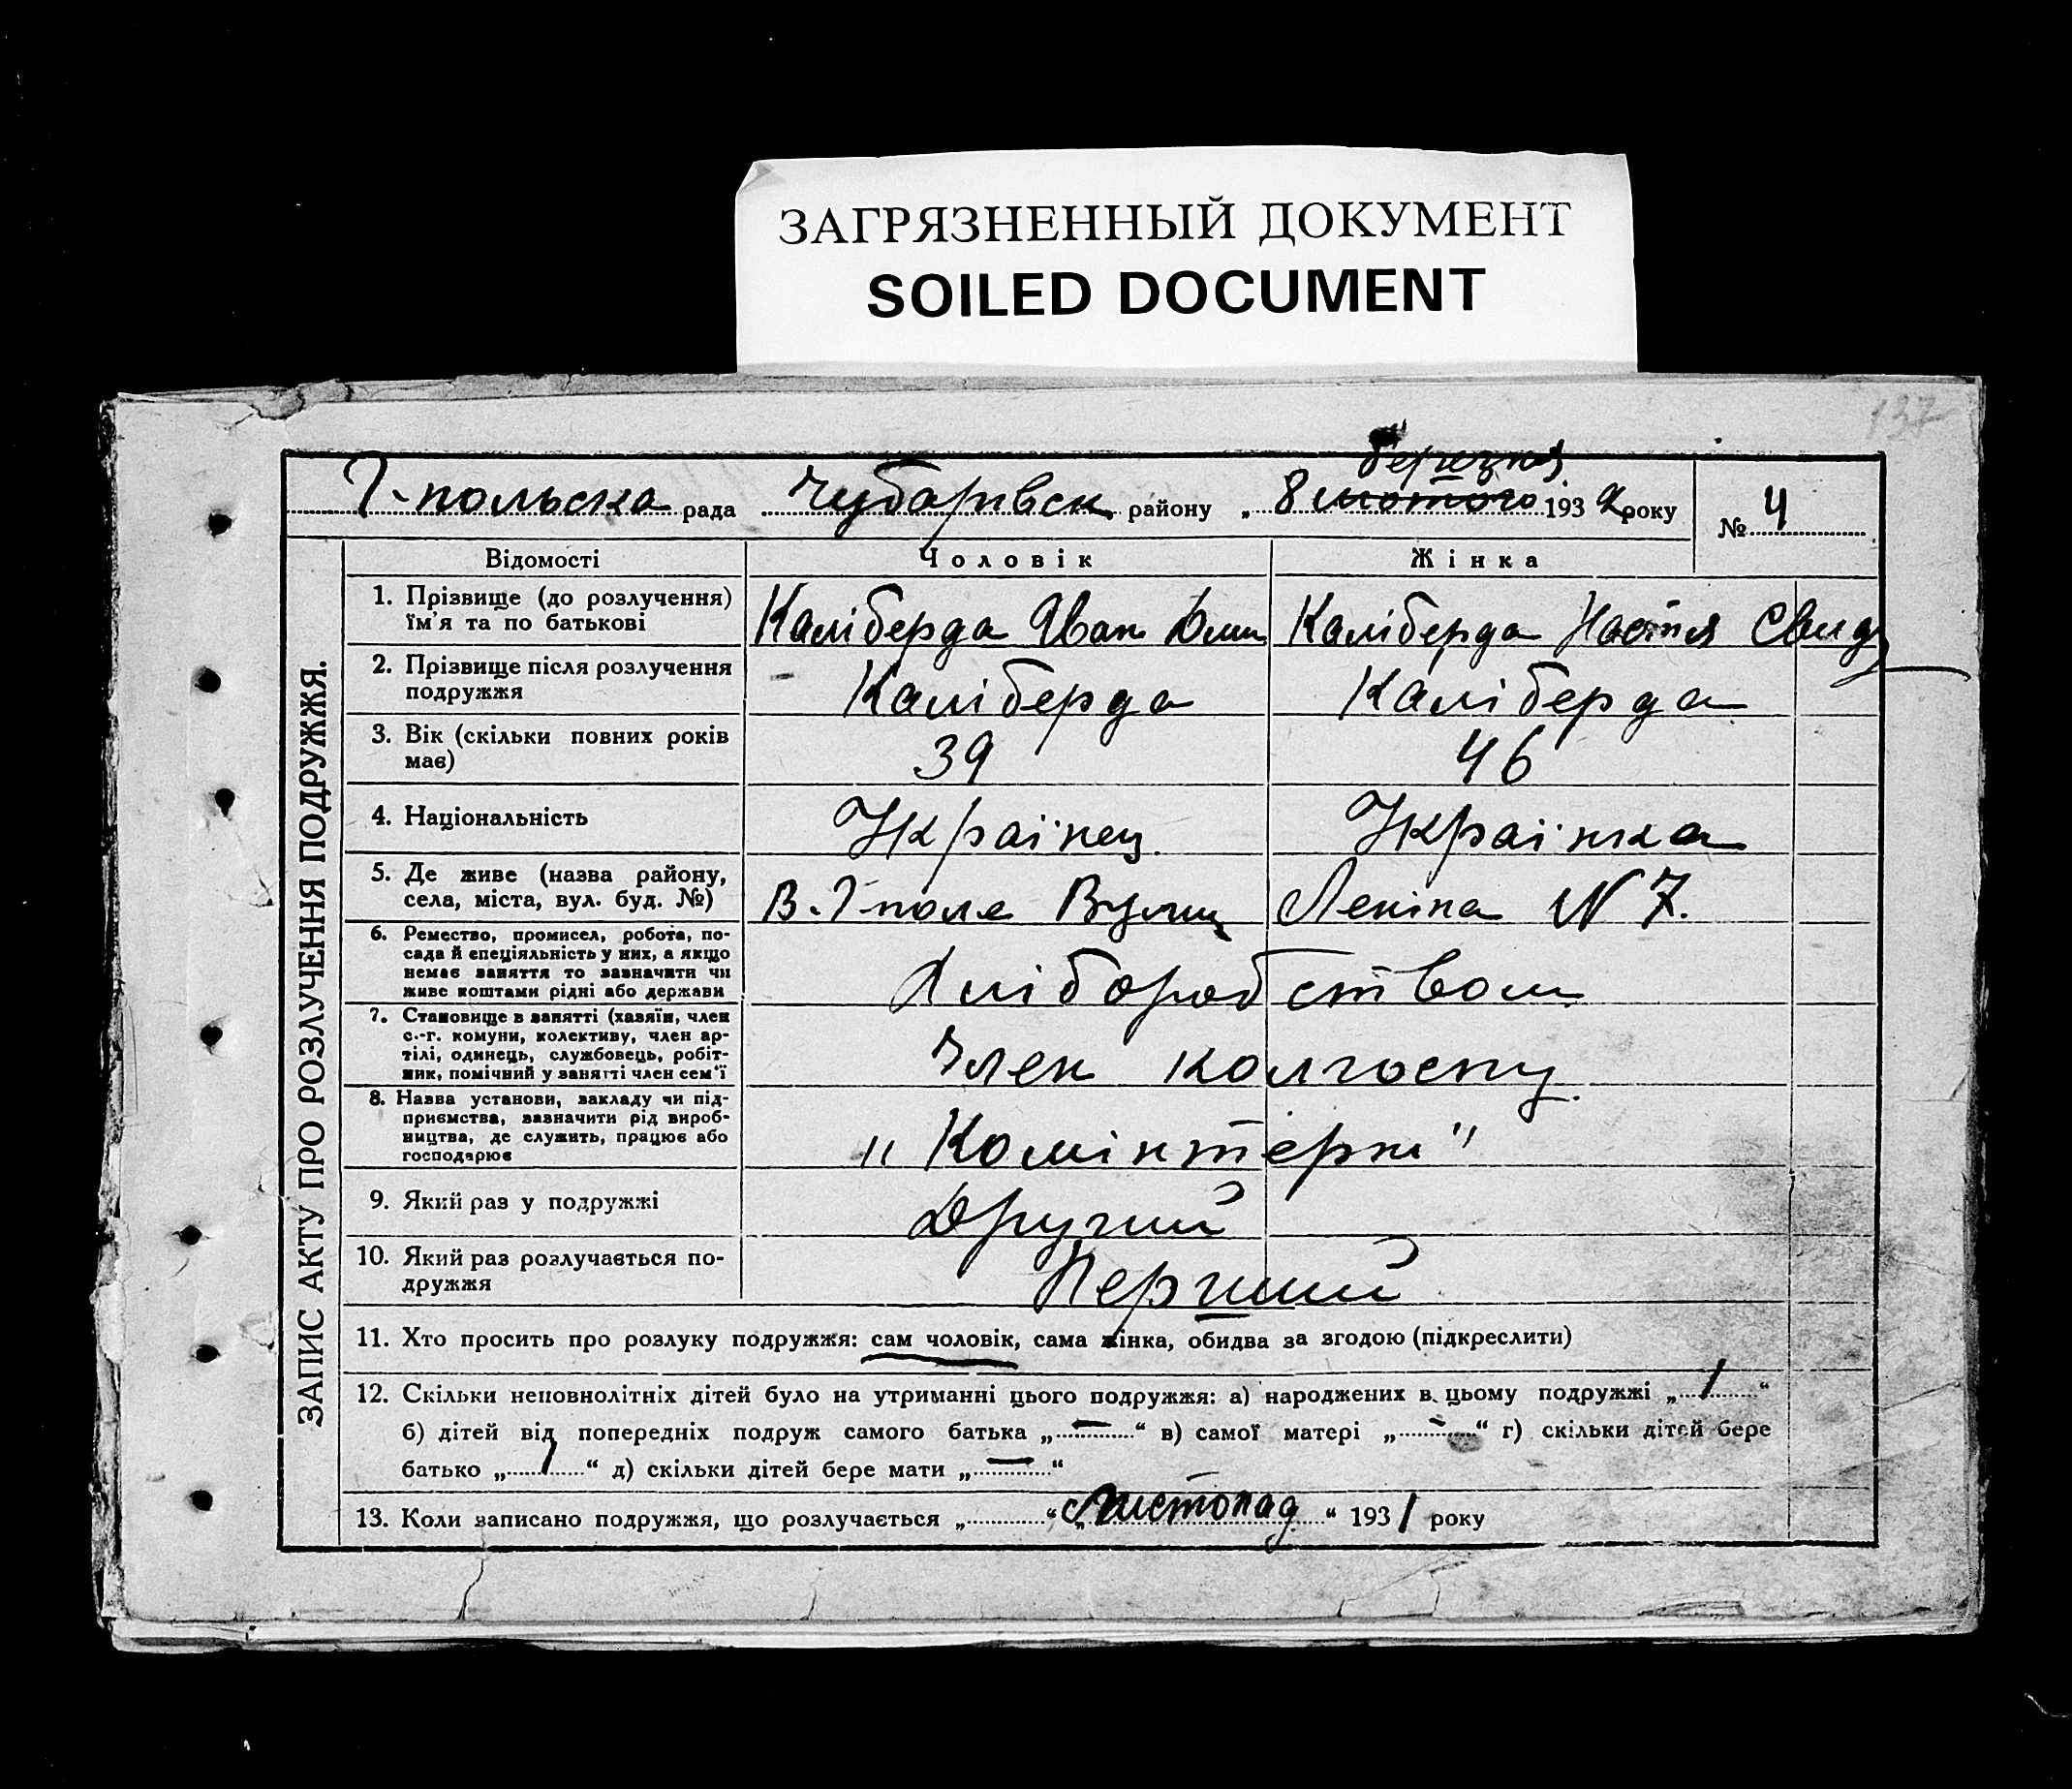 ЗАГРЯЗНЕННЫЙ ДОКУМЕНТ
SOILED DOCUMENT
137
березня
Г-польска рада Чубарівск району „ 8 лютого 1932 року № 4
ЗАПИС АКТУ ПРО РОЗЛУЧЕННЯ ПОДРУЖЖЯ.
Відомості Чоловік Жінка
1. Прізвище (до розлучення) Каліберда Іван Каліберда Настя
їм'я та по батькові
2. Прізвище після розлучення Каліберда Каліберда
подружжя
3. Вік (скільки повних років 39 46
має)
4. Національність Українец Українка
5. Де живе (назва району, В. Г поле Вулиц Леніна N 7.
села, міста, вул. буд. №)
6. Ремество, промисел, робота, по-
сада й спеціяльність у них, а якщо Хліборобством
немає заняття то зазначити чи
живе коштами рідні або держави
7. Становище в занятті (хазяїн, член
с.-г. комуни, колективу, член ар- Член колгоспу
тілі, одинець, службовець, робіт-
ник, помічний у занятті член сем'ї
8. Назва установи, закладу чи під-
приємства, зазначити рід вироб- „Комінтерн"
ництва, де служить, працює або
господарює
9. Який раз у подружжі Другий
10. Який раз розлучається по- Перший
дружжя
11. Хто просить про розлуку подружжя: сам чоловік, сама жінка, обидва за згодою (підкреслити)
12. Скільки неповнолітніх дітей було на утриманні цього подружжя: а) народжених в цьому подружжі „ 1 “
б) дітей від попередніх подруж самого батька „ — “ в) самої матері „ - “ г) скільки дітей бере
батько „ 1 “ д) скільки дітей бере мати „ — “
13. Коли записано подружжя, що розлучається „ “ „ Листопад “ 1931 року